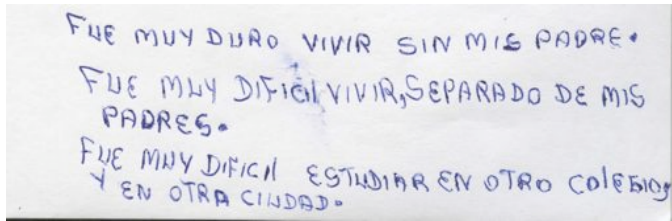 FUE MUY DURO VIVIR SIN MIS PADRE.
FUE MUY DIFICIL VIVIR, SEPARADO DE MIS
PADRES.
FUE MUY DIFICIL ESTUDIAR EN OTRO COLEGIOS
Y EN OTRA CIUDAD.